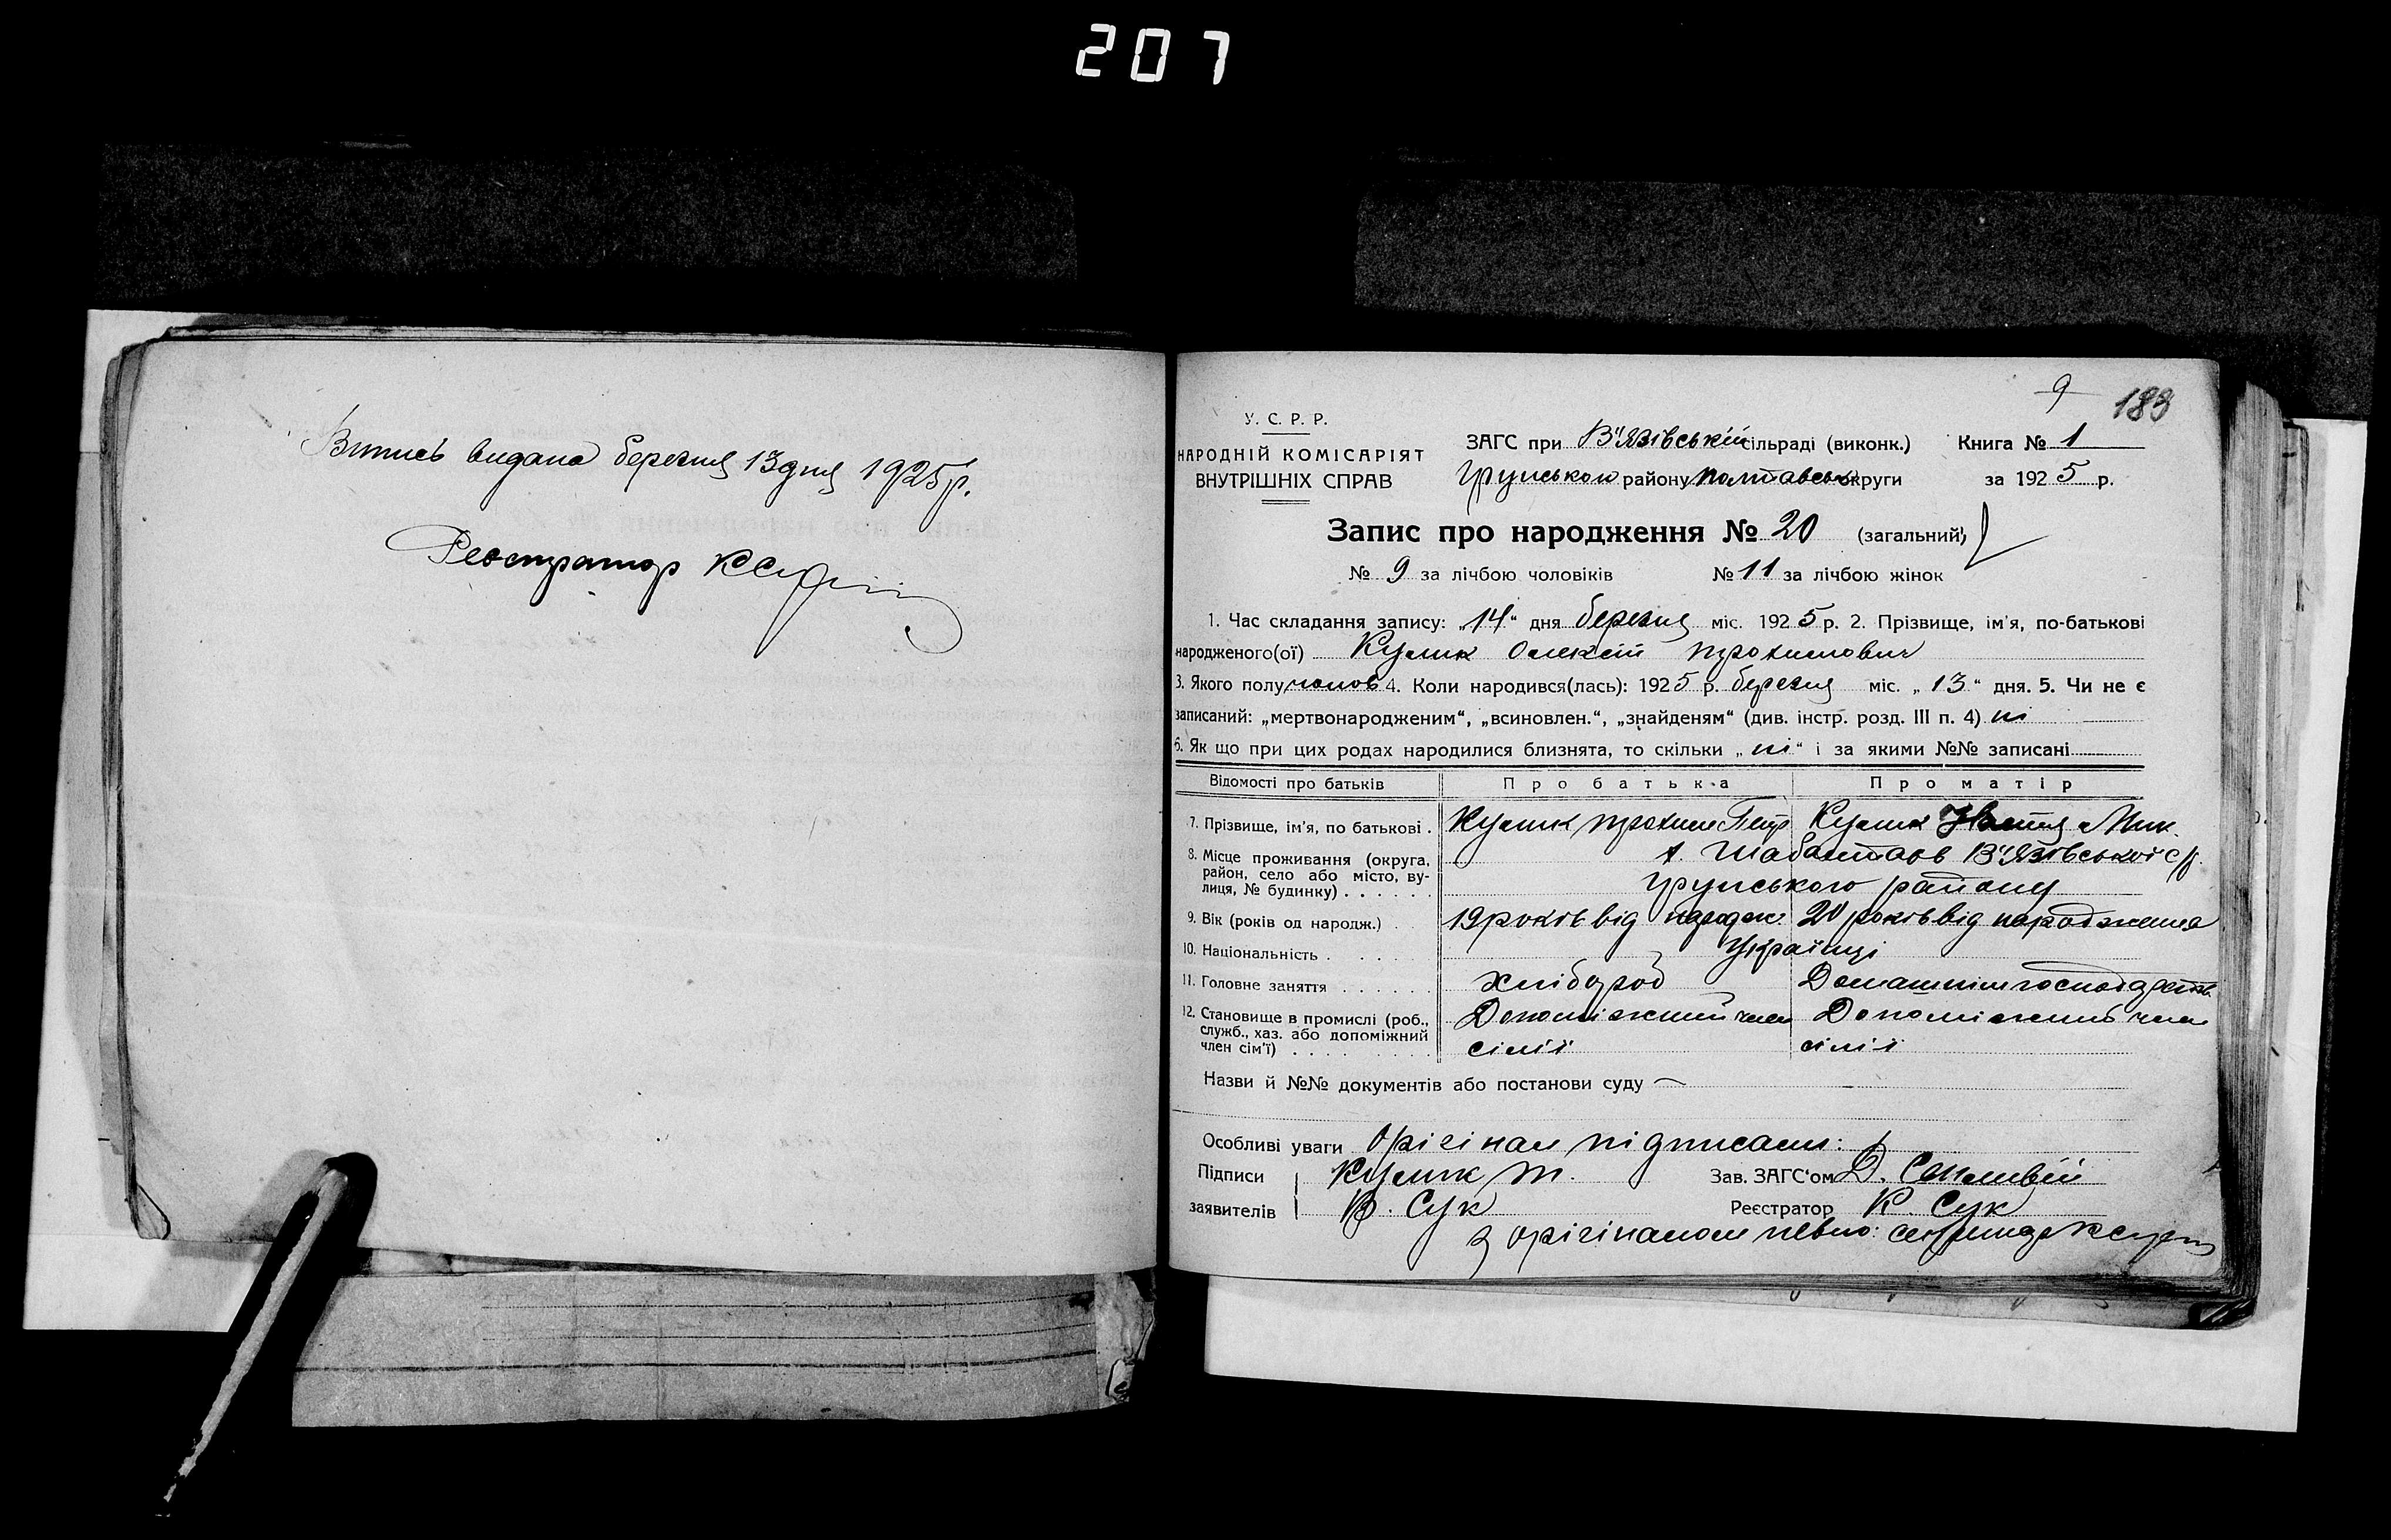 207
Витись видана березня 13 дня 1925 р.
Реєстратор К Сук
9
183
У. С. Р. Р.
НАРОДНІЙ КОМІСАРІЯТ
ВНУТРІШНІХ СПРАВ
ЗАГС при В'язівській сільраді (виконк.) Книга № 1
Грунського району Полтавськ округи за 1925 р.
Запис про народження № 20 (загальний)
№ 9 за лічбою чоловіків № 11 за лічбою жінок
1. Час складання запису: „14“ дня березня міс. 1925 р. 2. Прізвище, ім'я, по-батькові
народженого(ої) Кулик Олексій Прохилович
3. Якого полу чолов 4. Коли народився(лась): 1925 р. березня міс. „13“ дня. 5. Чи не є
записаний: „мертвонародженим“, „всиновлен.“, „знайденям“ (див. інстр. розд. III п. 4) ні
6. Як що при цих родах народилися близнята, то скільки „ні“ і за якими №№ записані
Відомості про батьків Про батька Про матір
7. Прізвище, ім'я, по батькові . Кулик Прохил Петр Кулик Мик.
8. Місце проживання (округа, район, село або місто, вулиця, № будинку) . . . . . х. Шабалтаов В'язівської с/р.
Грунського району
9. Вік (років од народж.) . . 19 років від народж 20 років від народження
10. Національність . . . . . Українці
11. Головне заняття . . . . . . хлібороб Домашнім господарств
12. Становище в промислі (роб., Допоміжний член Допоміжний член
служб., хаз. або допоміжний
член сім'ї) . . . . . . . . сімії сімії
Назви й №№ документів або постанови суду —
Особливі уваги Орігінал підписали:
Підписи Кулик П. Зав. ЗАГС'ом Д.
заявителів В. Сук Реєстратор К. Сук
З орігіналом певно: